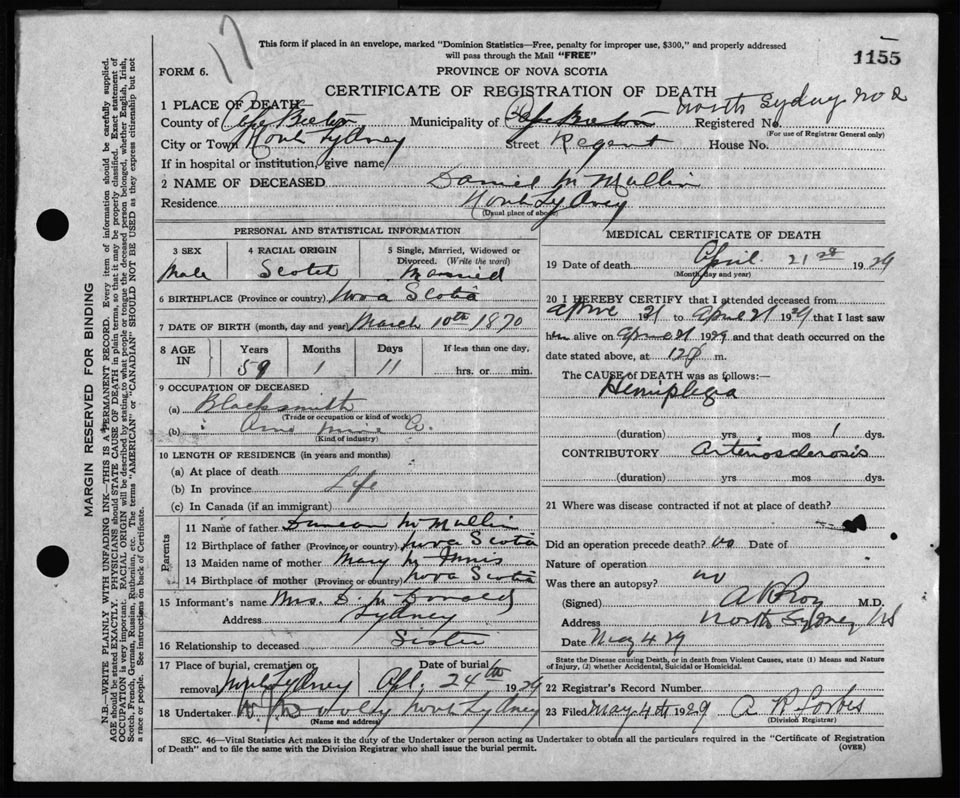 17
This form if placed in an envelope, marked "Dominion Statistics—Free, penalty for improper use, $300," and properly addressed
will pass through the Mail "FREE"
1155
FORM 6.
PROVINCE OF NOVA SCOTIA
CERTIFICATE OF REGISTRATION OF DEATH
1 PLACE OF DEATH
North Sydney No 2
County of Cape Breton Municipality of Cape Breton Registered No.
(For use of Registrar General only)
City or Town North Sydney Street Regent House No.
If in hospital or institution, give name
2 NAME OF DECEASED Daniel McMullin
Residence North Sydney
(Usual place of abode)
PERSONAL AND STATISTICAL INFORMATION
3 SEX
Male
4 RACIAL ORIGIN
Scotch
5 Single, Married, Widowed or
Divorced. (Write the word)
Married
6 BIRTHPLACE (Province or country) Nova Scotia
7 DATE OF BIRTH (month, day and year) March 10th 1870
8 AGE IN
Years Months Days If less than one day,
59 1 11 hrs. or min.
9 OCCUPATION OF DECEASED
(a) Blacksmith
(Trade or occupation or kind of work)
(b) Co.
(Kind of industry)
10 LENGTH OF RESIDENCE (in years and months)
(a) At place of death
(b) In province Life
(c) In Canada (if an immigrant)
Parents
11 Name of father Duncan McMullin
12 Birthplace of father (Province or country) Nova Scotia
13 Maiden name of mother Mary McInnis
14 Birthplace of mother (Province or country) Nova Scotia
15 Informant's name Mrs. D. McDonald
Address Sydney
16 Relationship to deceased Sister
17 Place of burial, cremation or Date of burial
removal North Sydney Apl. 24th 1929
18 Undertaker W. Dooley North Sydney
(Name and address)
MEDICAL CERTIFICATE OF DEATH
19 Date of death April 21st 1929
(Month, day and year)
20 I HEREBY CERTIFY that I attended deceased from
April 21 to April 21 1929 that I last saw
him alive on April 21 1929 and that death occurred on the
date stated above, at m.
The CAUSE of DEATH was as follows:—
Hemiplegia
(duration) yrs. mos. 1 dys.
CONTRIBUTORY Arteriosclerosis
(duration) yrs. mos. dys.
21 Where was disease contracted if not at place of death?
Did an operation precede death? No Date of
Nature of operation
Was there an autopsy? no
(Signed) M.D.
Address North Sydney NS
Date May 4 29
State the Disease causing Death, or in death from Violent Causes, state (1) Means and Nature
of Injury, (2) whether Accidental, Suicidal or Homicidal.
22 Registrar's Record Number
23 Filed May 4th 1929 A R Forbes
(Division Registrar)
SEC. 46—Vital Statistics Act makes it the duty of the Undertaker or person acting as Undertaker to obtain all the particulars required in the "Certificate of Registration
of Death" and to file the same with the Division Registrar who shall issue the burial permit.
(OVER)
MARGIN RESERVED FOR BINDING
N.B.—WRITE PLAINLY WITH UNFADING INK—THIS IS A PERMANENT RECORD. Every item of information should be carefully supplied.
AGE should be stated EXACTLY. PHYSICIANS should STATE CAUSE OF DEATH in plain terms, so that it may be properly classified. Exact statement of
OCCUPATION is very important. RACIAL ORIGIN will be described by stating to what people or tongue the deceased person belonged, whether English, Irish,
Scotch, French, German, Russian, Ruthenian, etc. The terms "AMERICAN" or "CANADIAN" SHOULD NOT BE USED as they express citizenship but not
a race or people. See instructions on back of Certificate.